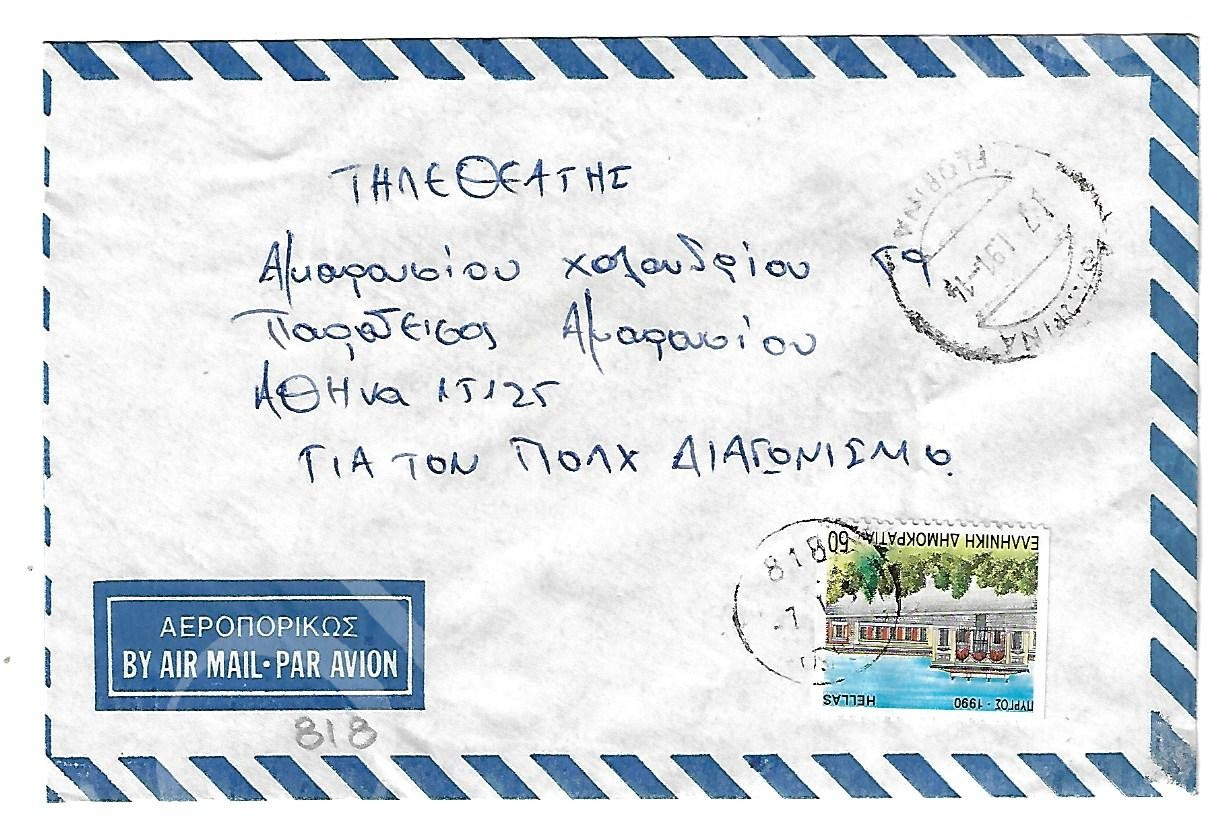 ΤΗΛΕΘΕΑΤΗΣ
Αμαρουσίου χαλανδρίου 59
Παράδεισος Αμαρουσίου
ΑΘΗνα 15125
ΓΙΑ ΤΟΝ ΠΟΛΧ ΔΙΑΓΩΝΙΣΜΟ
FLORINA
17 · 1 91-14
ΦΛΩΡΙΝΑ
818
60
ΕΛΛΗΝΙΚΗ ΔΗΜΟΚΡΑΤΙΑ
ΠΥΡΓΟΣ - 1990
HELLAS
ΑΕΡΟΠΟΡΙΚΩΣ
BY AIR MAIL • PAR AVION
818